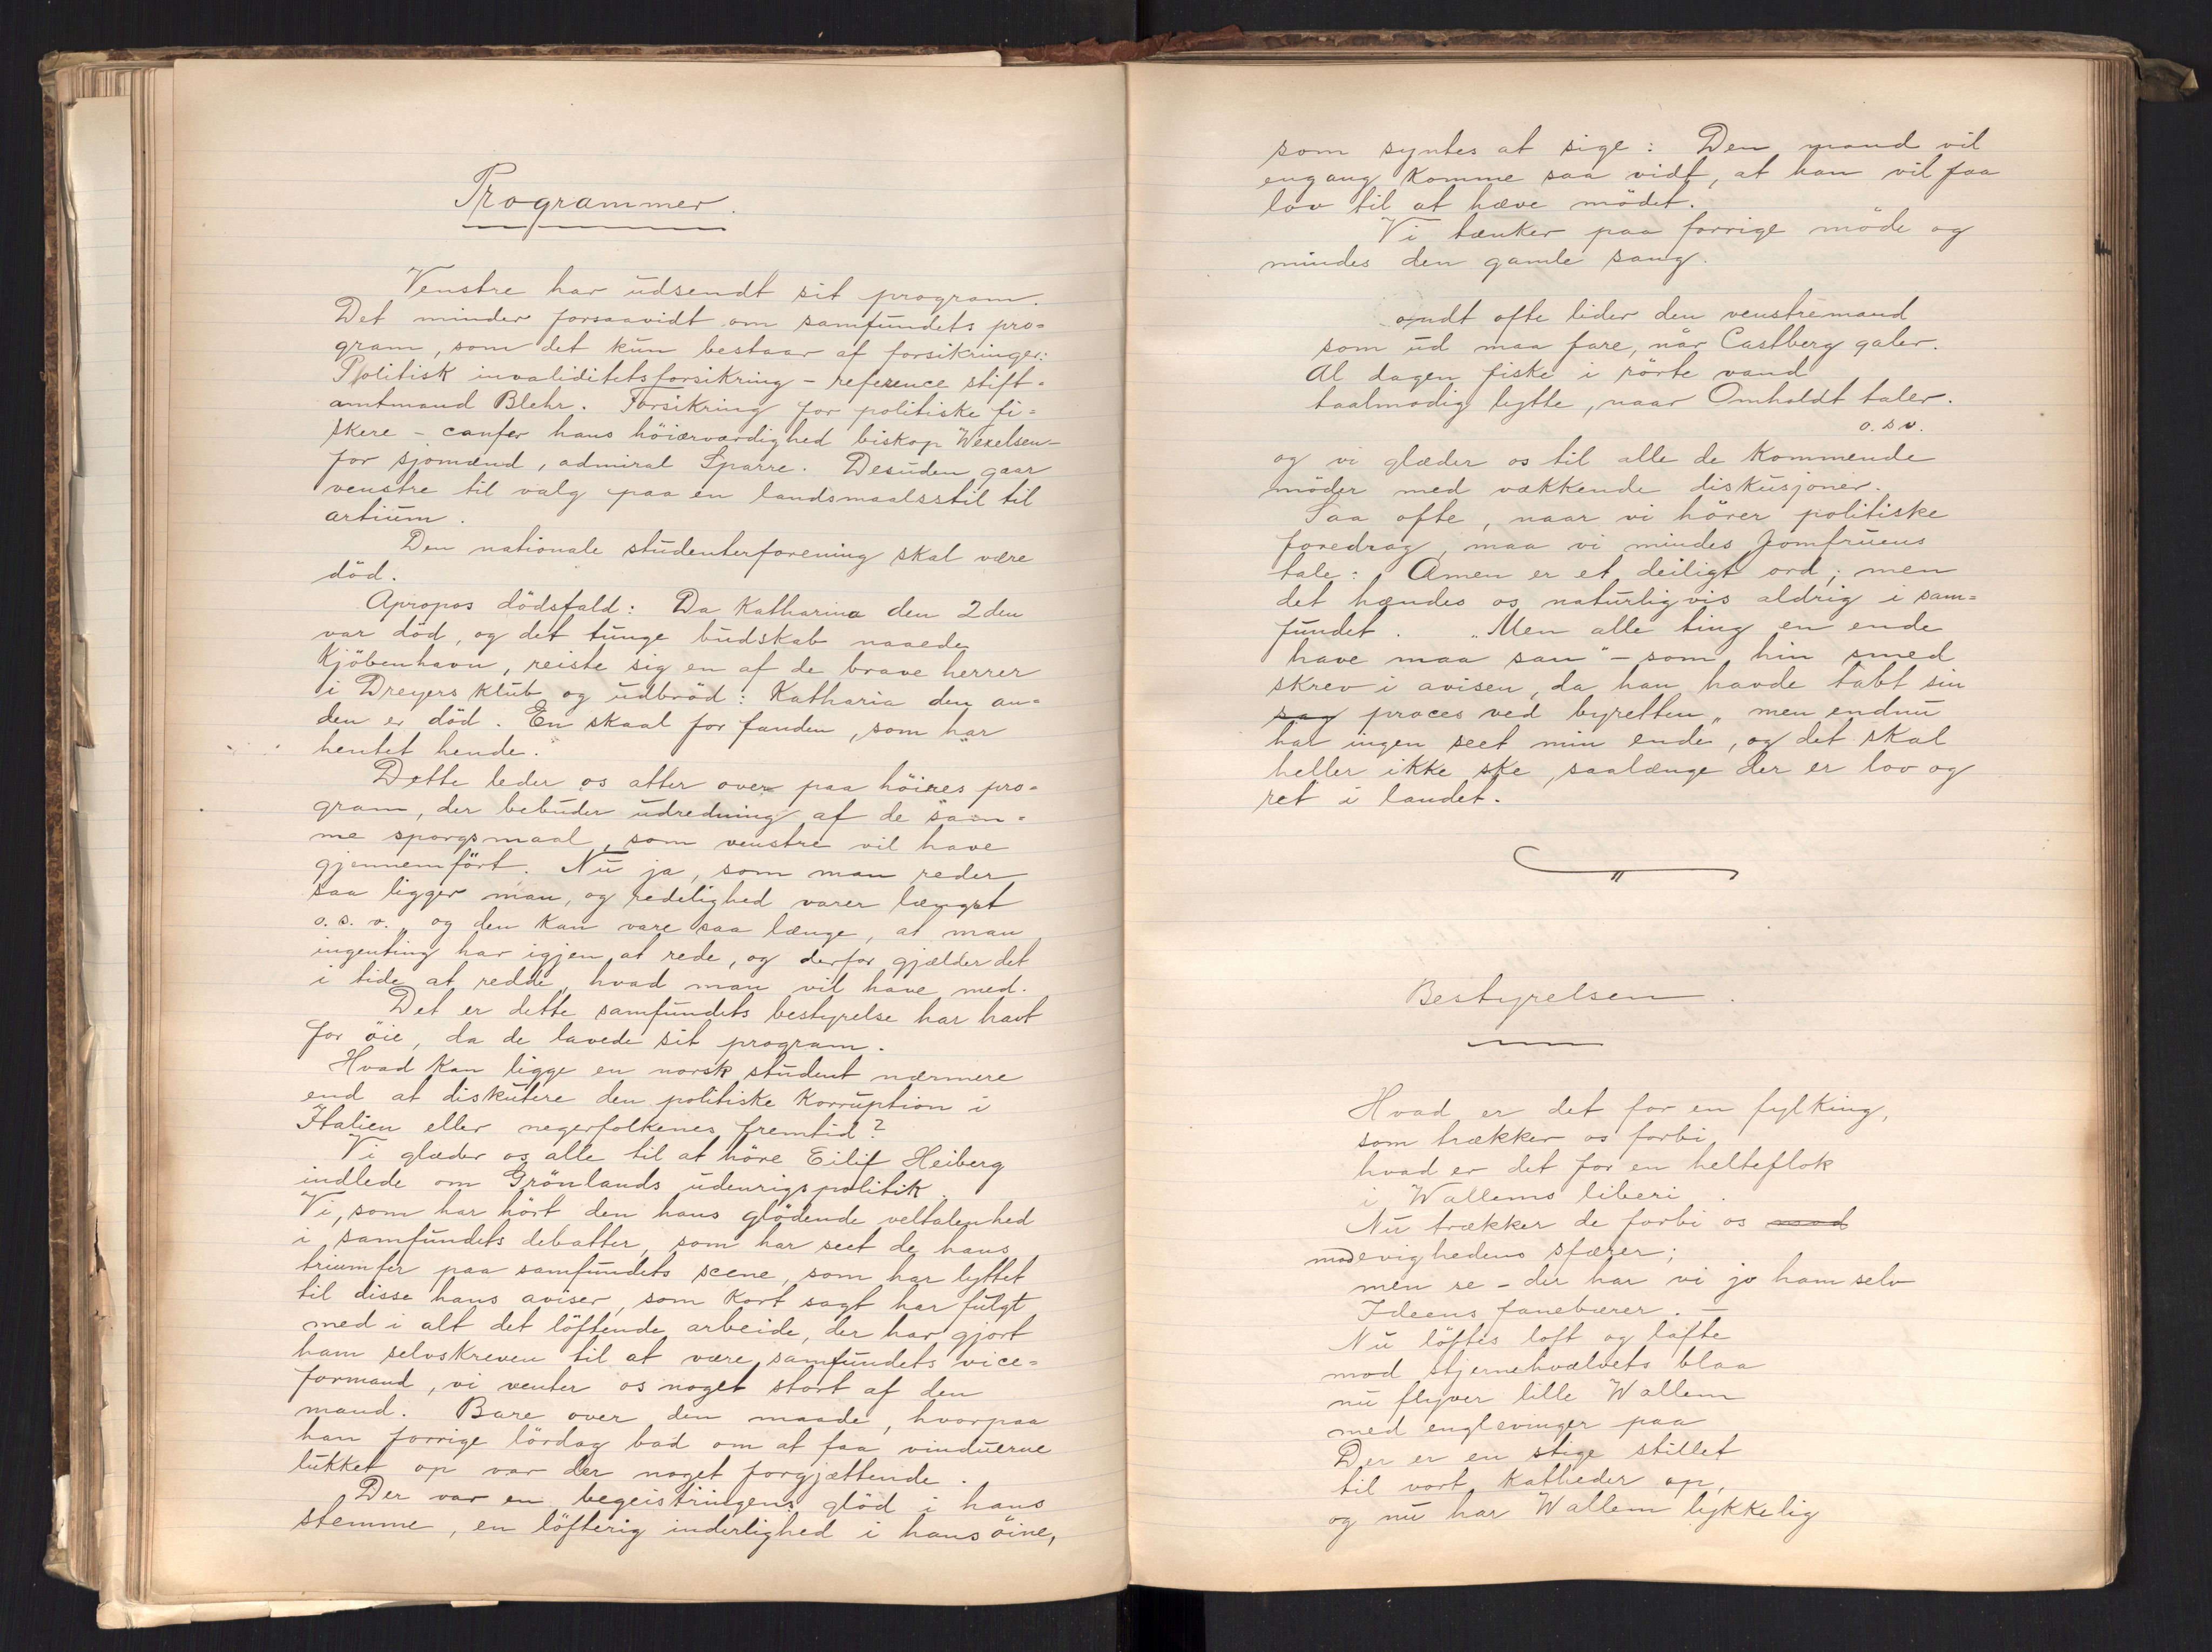 Programmer.
Venstre har udsendt sit program.
Det minder forsaavidt om samfundets pro=
gram, som det kun bestaar af forsikringer:
Politisk invaliditetsforsikring - reference stift=
amtmand Blehr. Forsikring for politiske fi=
skere - canfer hans höiærværdighed biskop Wexelsen -
for sjömænd, admiral Sparre. Desuden gaar
venstre til valg paa en landsmaalsstil til
artium.
Den nationale studenterforening skal være
död.
Apropos dödsfald: Da Katharina den 2den
var död, og det tunge budskab naaede
Kjöbenhavn, reiste sig en af de brave herrer
i Dreyers klub og udbröd: Katharia den an=
den er död. En skaal for fanden, som har
hentet hende."
Dette leder os atter over paa höires pro=
gram, der bebuder udredning af de sam=
me sporgsmaal, som venstre vil have
gjennemfört. Nu ja, som man reder
saa ligger man, og redelighed varer længst
o. s. v. og den kan vare saa længe, at man
ingenting har igjen at rede, og derfor gjælder det
i tide at redde, hvad man vil have med.
Det er dette samfundets bestyrelse har havt
for öie, da de lavede sit program.
Hvad kan ligge en norsk student nærmere
end at diskutere den politiske korruption i
Italien eller negerfolkenes fremtid?
Vi glæder os alle til at höre Eilif Heiberg
indlede om Grönlands udenrigspolitik.
Vi, som har hört den hans glödende veltalenhed
i samfundets debatter, som har seet de hans
triumfer paa samfundets scene, som har lyttet
til disse hans aviser, som kort sagt har fulgt
med i alt det löftende arbeide, der har gjort
ham selvskreven til at være samfundets vice=
formand, vi venter os noget stort af den
mand. Bare over den maade, hvorpaa
han forrige lördag bad om at faa vinduerne
lukket op var der noget forgjættende.
Der var en begeistringens glöd i hans
stemme, en löfterig inderlighed i hans öine,
som syntes at sige: Den mand vil
engang komme saa vidt, at han vil faa
lov til at hæve mödet.
Vi tænker paa forrige möde og
mindes den gamle sang.
ondt ofte lider den venstremand
som ud maa fare, når Castberg galer.
Al dagen fiske i rörte vand
taalmodig lytte, naar Omholdt taler.
o. s v.
og vi glæder os til alle de kommende
möder med vækkende diskusjoner.
Saa ofte, naar vi hörer politiske
foredrag, maa vi mindes Jomfruens
tale: Amen er et deiligt ord; men
det hændes os naturligvis aldrig i sam=
fundet. "Men alle ting en ende
have maa saa" - som hin smed
skrev i avisen, da han havde tabt sin
sag proces ved byretten" men endnu
har ingen seet min ende, og det skal
heller ikke ske, saalænge der er lov og
ret i landet.
Bestyrelsen.
Hvad er det for en fylking,
som trækker os forbi
hvad er det for en helteflok
i Wallems liberi.
Nu trækker de forbi os mod
mod evighedens sfærer;
men se - der har vi jo ham selv
Ideens fanebærer. -
Nu löftes loft og lofte
mod stjernehvælvets blaa
nu flyver lille Wallem
med englevinger paa
Der er en stige stillet
til vort katheder op,
og nu har Wallem lykkelig